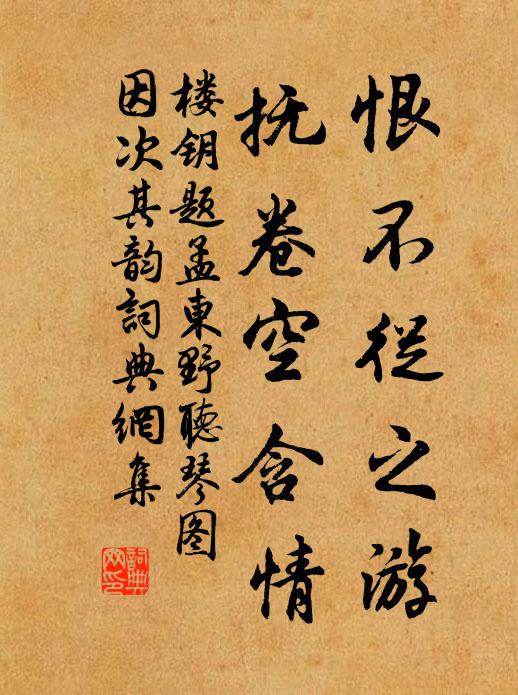 恨不從之游
抚卷空含情
楼钥题孟東野聽琴图
因次其韵詞典網集
詞典网印